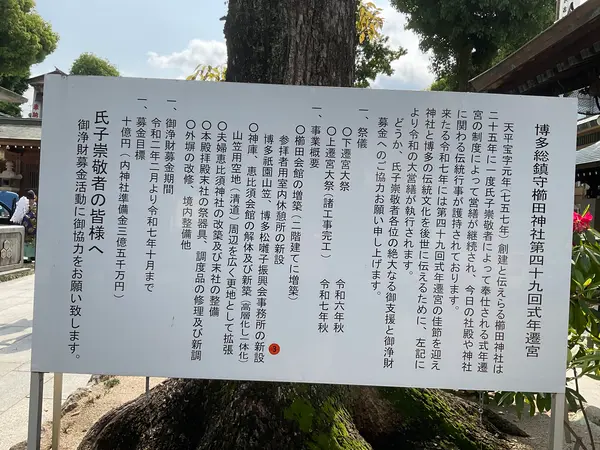 博多総鎮守櫛田神社第四十九回式年遷宮
天平宝字元年(七五七年)創建と伝えらる櫛田神社は
二十五年に一度氏子崇敬者によって奉仕される式年遷
宮の制度によって営繕が継続され、今日の社殿や神社
に関わる伝統行事が護持されております。
来たる令和七年には第四十九回式年遷宮の佳節を迎え
神社と博多の伝統文化を後世に伝えるために、左記に
より令和の大営繕が執行されます。
どうか、氏子崇敬者各位の絶大なる御支援と御浄財
募金へのご協力お願い申し上げます。
一、祭儀
〇下遷宮大祭 令和六年秋
〇上遷宮大祭(諸工事完工) 令和七年秋
一、事業概要
〇櫛田会館の増築(二階建てに増築)
参拝者用室内休憩所の新設
博多祇園山笠、博多松囃子振興会事務所の新設
〇神庫、恵比須会館の解体及び新築(高層化し一体化)
山笠用空地(清道)周辺を広く更地として拡張
③
〇夫婦恵比須神社の改築及び末社の整備
〇本殿拝殿末社の祭器具、調度品の修理及び新調
〇外塀の改修、境内整備他
一、御浄財募金期間
令和二年二月より令和七年十月まで
一、募金目標
十億円(内神社準備金三億五千万円)
氏子崇敬者の皆様へ
御浄財募金活動に御協力をお願い致します。